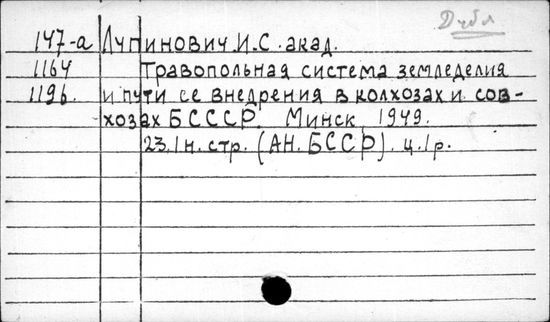 Дубл
147-а Лупинович И.С. акад.
1164 Травопольная система земледелия
1196. и пути ее внедрения в колхозах и сов-
хозах БСССР. Минск 1949.
23.1н. стр. (АН. БССР). ц.1р.